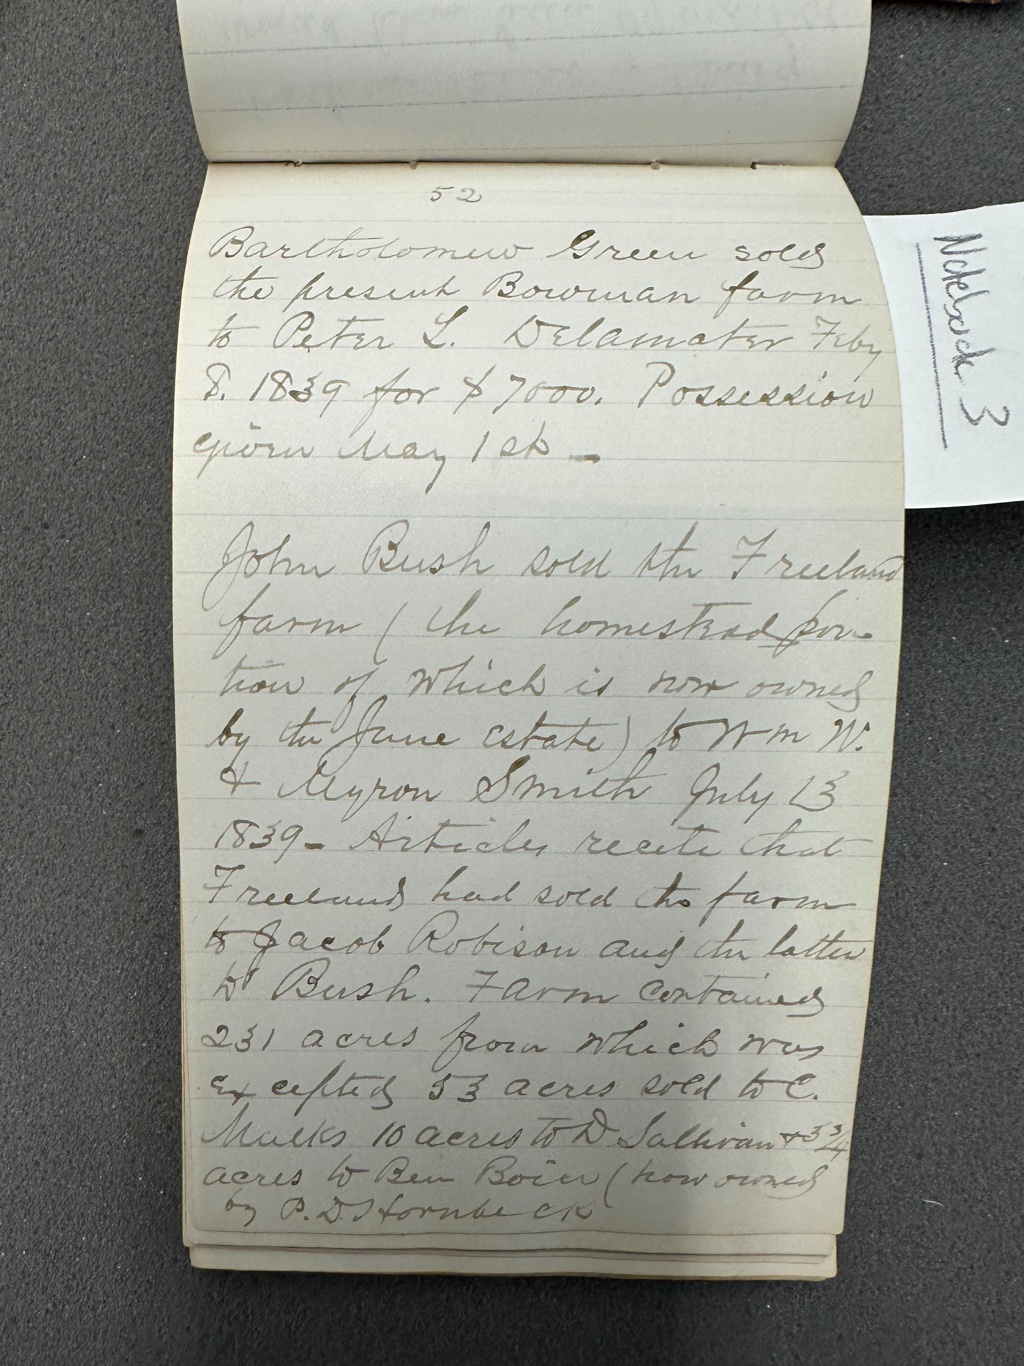 52
Bartholomew Green sold
the present Bowman farm
to Peter L. Delamater Feby
8. 1839 for $7000. Possession
given May 1st —
John Bush sold the Freeland
farm ( the homestead por-
tion of which is now owned
by the June estate) to Wm W.
& Myron Smith July 13
1839 - Articles recite that
Freeland had sold the farm
to Jacob Robison and the latter
to Bush. Farm contained
231 acres from which was
excepted 53 acres sold to C.
Mulks 10 acres to D Sullivan & 3 3/4
acres to Ben Boier ( now owned
by P. D. Hornbeck
Notebook 3